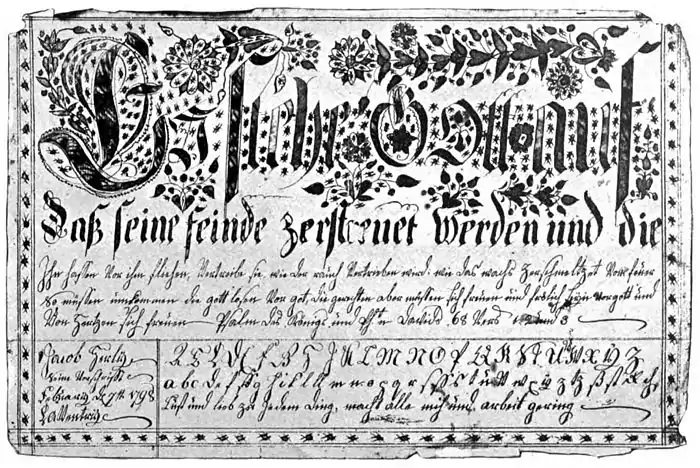 Es stehe Gott auf
Daß seine feinde zerstreuet werden und die
Ihn hassen vor ihm fliehen, Vertreibe sie, wie der rauch Vertrieben wird, wie das wachs zerschmeltzet Vom feuer
So müssen umkommen die gott losen vor got, die gerechten aber müssen sich freuen und frölich seyn vor gott und
Von Hertzen sich freuen Psalm des Königs und Davids 68 Vers 3
Jacob
seine Vorschrift
den 7ten 1798
A B C D E F G H J K L M N O P Q R S T U V W X Y Z
a b c d e f g h i k l m n o p q r s t u v w x y z
Lust und lieb zu jedem ding, macht alle müh und arbeit gering